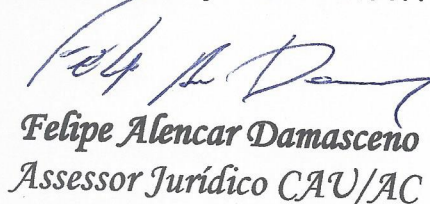 Felipe Alencar Damasceno
Assessor Jurídico CAU/AC